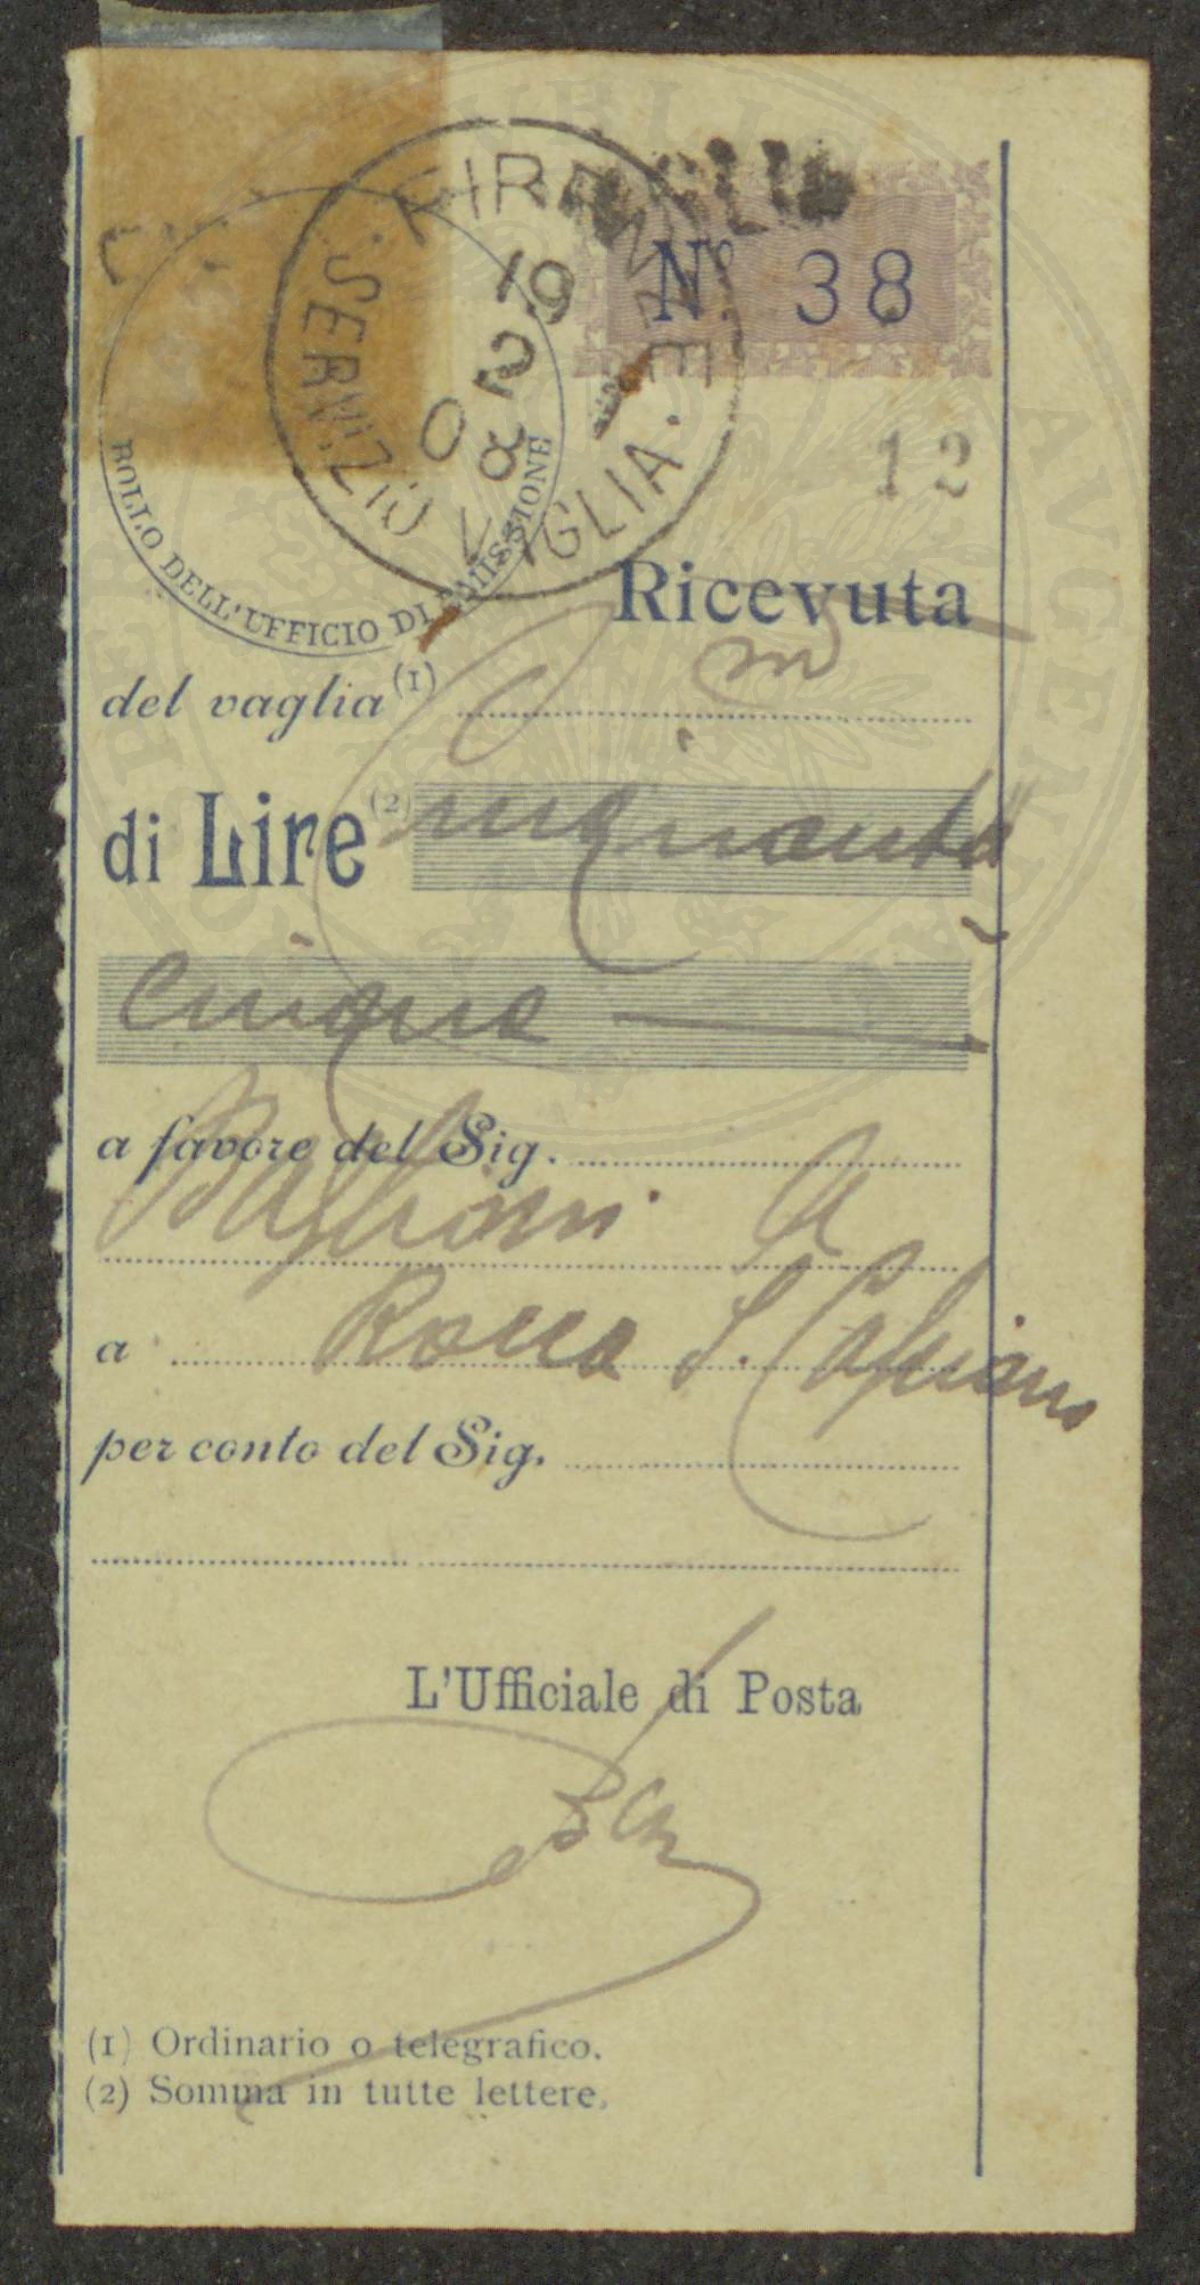 Nº. 38
SERVIZIO VAGLIA.
19
2
08
12
BOLLO DELL'UFFICIO DI EMISSIONE
Ricevuta
del vaglia (1)
di Lire (2) Cinquanta
cinque
a favore del Sig.
Baglioni A
a Rocca S. Casciano
per conto del Sig.
L'Ufficiale di Posta
(1) Ordinario o telegrafico.
(2) Somma in tutte lettere.